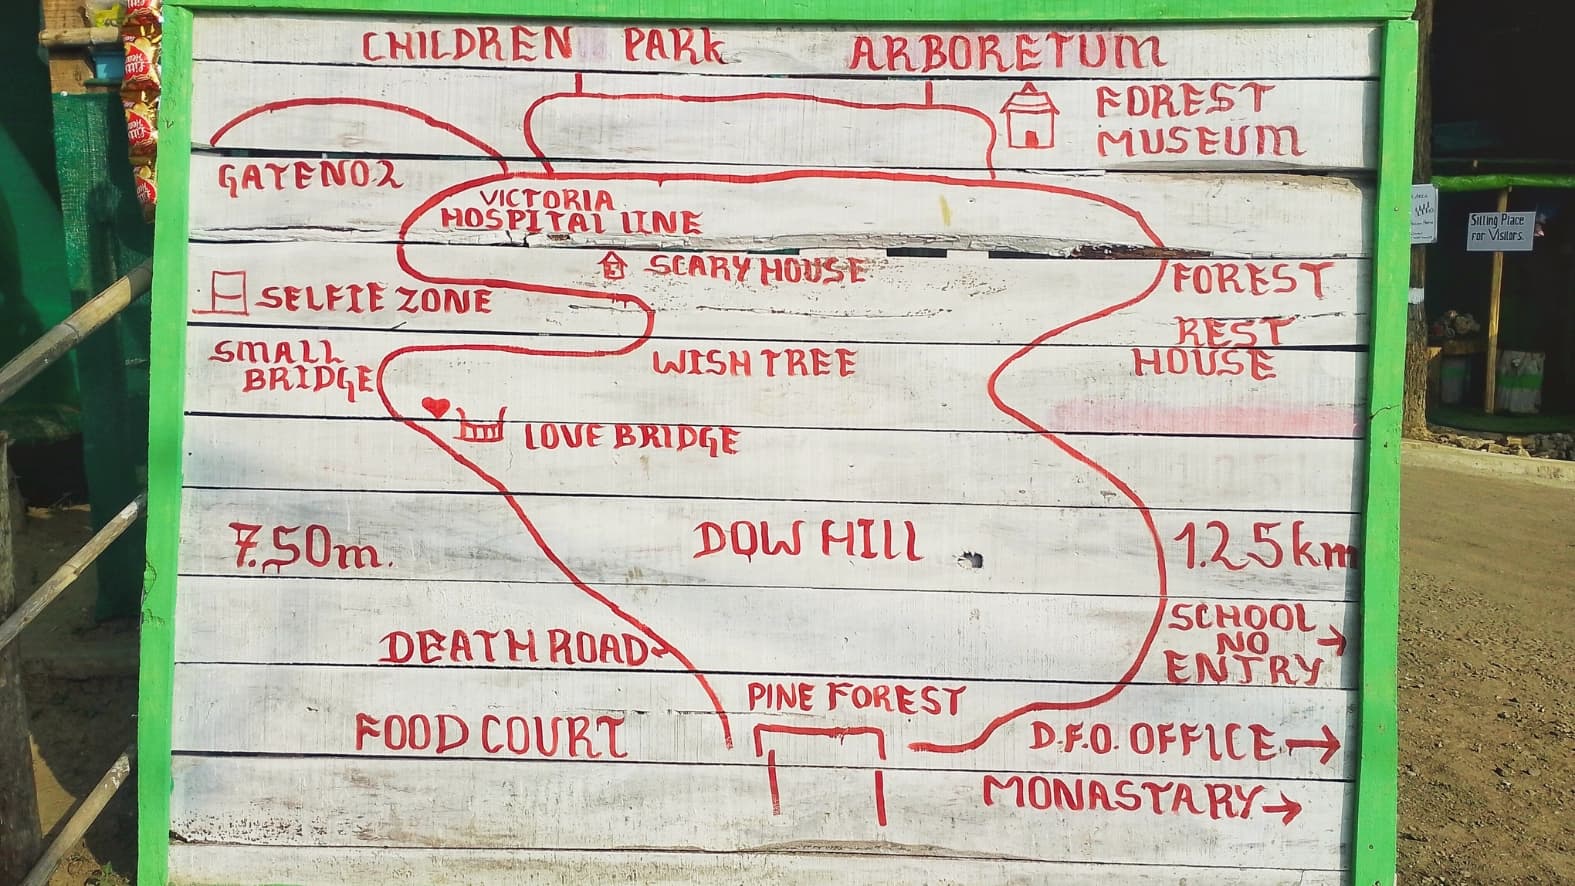 CHILDREN PARK ARBORETUM
FOREST
MUSEUM
GATENO2
VICTORIA
HOSPITAL LINE
SCARY HOUSE
FOREST
SELFIE ZONE
REST
HOUSE
SMALL
BRIDGE
WISH TREE
LOVE BRIDGE
7.50m.
DOW HILL
1.25km
SCHOOL
NO
ENTRY
DEATH ROAD
PINE FOREST
FOOD COURT
D.F.O. OFFICE
MONASTARY
Sitting Place
for Visitors.